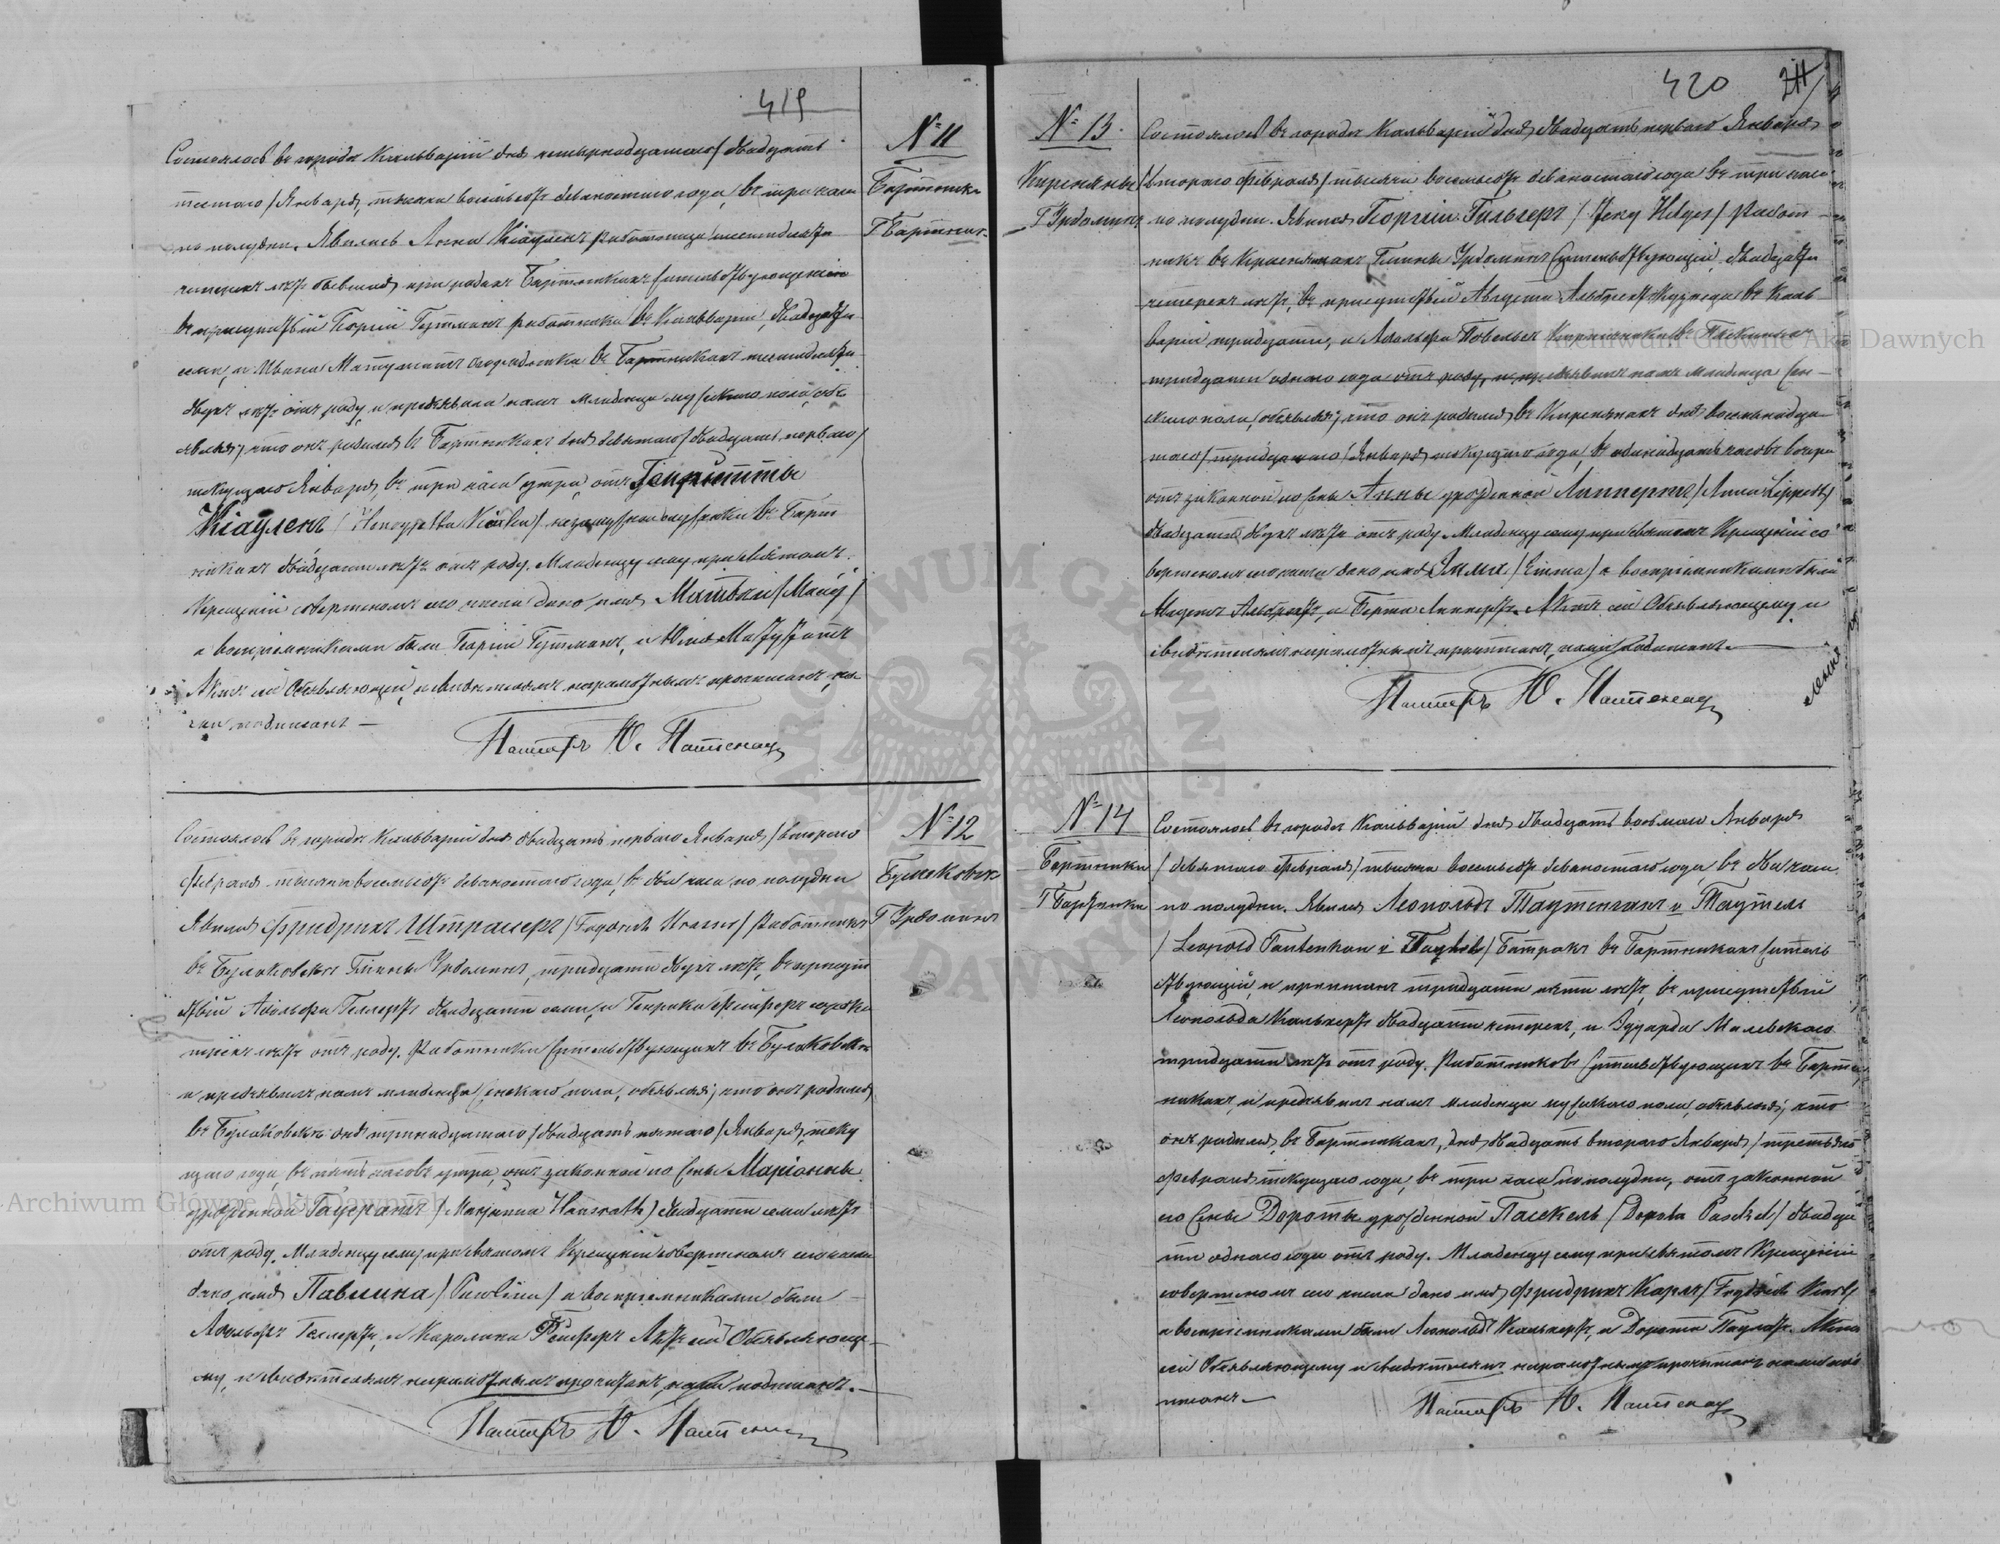 419
№ 11
Бартники
Г Бартник.
Состоялось въ городѣ Кальваріи дня четырнадцатаго / двадцать
шестаго / Января, тысяча восемьсотъ девяностаго года, въ три часа
по полудни. Явилась Анна Кіауленъ работница шестидесяти
четырехъ лѣтъ бывшая при родахъ Бартникахъ жительствующая
въ присутствіи Георгія Гутманъ работника въ Кальваріи, двадцати
семи, и Ивана Матушатъ господарика въ Бартникахъ шестидесяти
двухъ лѣтъ отъ роду, и предъявила намъ младенца мужескаго пола, объ
являя, что онъ родился въ Бартникахъ дня девятаго / двадцать перваго /
текущаго Января, въ три часа утра, отъ Генріетты
Кіауленъ / Henryetta Kiaulen / незамужней служанки въ Барт
никахъ двадцати лѣтъ отъ роду. Младенцу сему при святомъ
Крещеніи совершенномъ сего числа дано имя Матвѣй /
а воспріемниками были Георгій Гутманъ, и Юлія Матушатъ
Актъ сей Объявляющей, и свидѣтелямъ неграмотнымъ прочитанъ, на
ми подписанъ —
Пасторъ Ю.
№ 12
Булаковск.
Г Урдоминъ
Состоялось въ городѣ Кальваріи дня двадцать перваго Января / втораго
Февраля тысяча восемьсотъ девяностаго года, въ два часа по полудни
Явился Фридрихъ Штрасеръ / работникъ
въ Булаковскѣ Гмины Урдоминъ, тридцати двухъ лѣтъ, въ присут
ствіи Адольфа Геллертъ двадцати семи, и Генриха Фейферъ сорока
трехъ лѣтъ отъ роду. Работники жительствующихъ въ Булаковскѣ
и предъявилъ намъ младенца женскаго пола, объявляя, что онъ родился
въ Булаковскѣ дня тринадцатаго / двадцать пятаго / Января, теку
щаго года, въ пять часовъ утра, отъ законной его жены Маріанны
урожденной / двадцати семи лѣтъ
отъ роду. Младенцу сему при святомъ Крещеніи совершенномъ сего числа
дано имя Павлина / Pawlina / а воспріемниками были
Адольфъ Геллертъ, и Каролина Фейферъ Актъ сей Объявляюще-
му, и свидѣтелямъ неграмотнымъ прочитанъ, нами подписанъ. —
Пасторъ Ю.
420
211
№ 13.
Киренянъ
Г Урдоминъ
Состоялось въ городѣ Кальваріи дня двадцать перваго Января
/ втораго Февраля / тысяча восемьсотъ девяностаго года въ три часа
по полудни. Явился Георгій Гильгеръ / работ
никъ въ Киренянахъ Гмины Урдоминъ жительствующій, двадцати
четырехъ лѣтъ, въ присутствіи Августа Альбрехтъ кузнеца въ Каль
варіи тридцати, и Адольфа
тридцати одного года отъ роду, и предъявилъ намъ младенца жен-
скаго пола, объявляя, что онъ родился въ Киренянахъ дня восемнадца
таго / тридцатаго / Января текущаго года, въ одинадцать часовъ вечера
отъ законной его жены Анны урожденной Липпертъ / Anna Lippert /
двадцати двухъ лѣтъ отъ роду. Младенцу сему при святомъ Крещеніи со
вершенномъ сего числа дано имя Эмма / Emma / а воспріемниками были
Августъ Альбрехтъ, и Берта Липпертъ. Актъ сей Объявляющему, и
свидѣтелямъ неграмотнымъ прочитанъ, нами подписанъ. —
Пасторъ Ю.
№ 14
Бартники
Г Бартники
Состоялось въ городѣ Кальваріи дня двадцать восьмаго Января
/ девятаго Февраля / тысяча восемьсотъ девяностаго года, въ два часа
по полудни. Явился Леопольдъ Таутенганъ и
/ Leopold Tautenhan i / батракъ въ Бартникахъ житель
ствующій, тридцати пяти лѣтъ, въ присутствіи
Леопольда Калькертъ двадцати четырехъ, и Эдуарда Малевскаго
тридцати лѣтъ отъ роду. Работниковъ жительствующихъ въ Барт
никахъ, и предъявилъ намъ младенца мужскаго пола, объявляя, что
онъ родился въ Бартникахъ, дня двадцать втораго Января / третьяго
Февраля текущаго года, въ три часа по полудни, отъ законной
его жены Дороты урожденной Пашкель / двадца
ти одного года отъ роду. Младенцу сему при святомъ Крещеніи
совершенномъ сего числа дано имя Фридрихъ Карлъ /
а воспріемниками были Леопольдъ Калькертъ, и Дорота. Актъ
сей Объявляющему и свидѣтелямъ неграмотнымъ прочитанъ нами под
писанъ. —
Пасторъ Ю.
ARCHIWUM GŁÓWNE AKT DAWNYCH
Archiwum Główne Akt Dawnych
Archiwum Główne Akt Dawnych